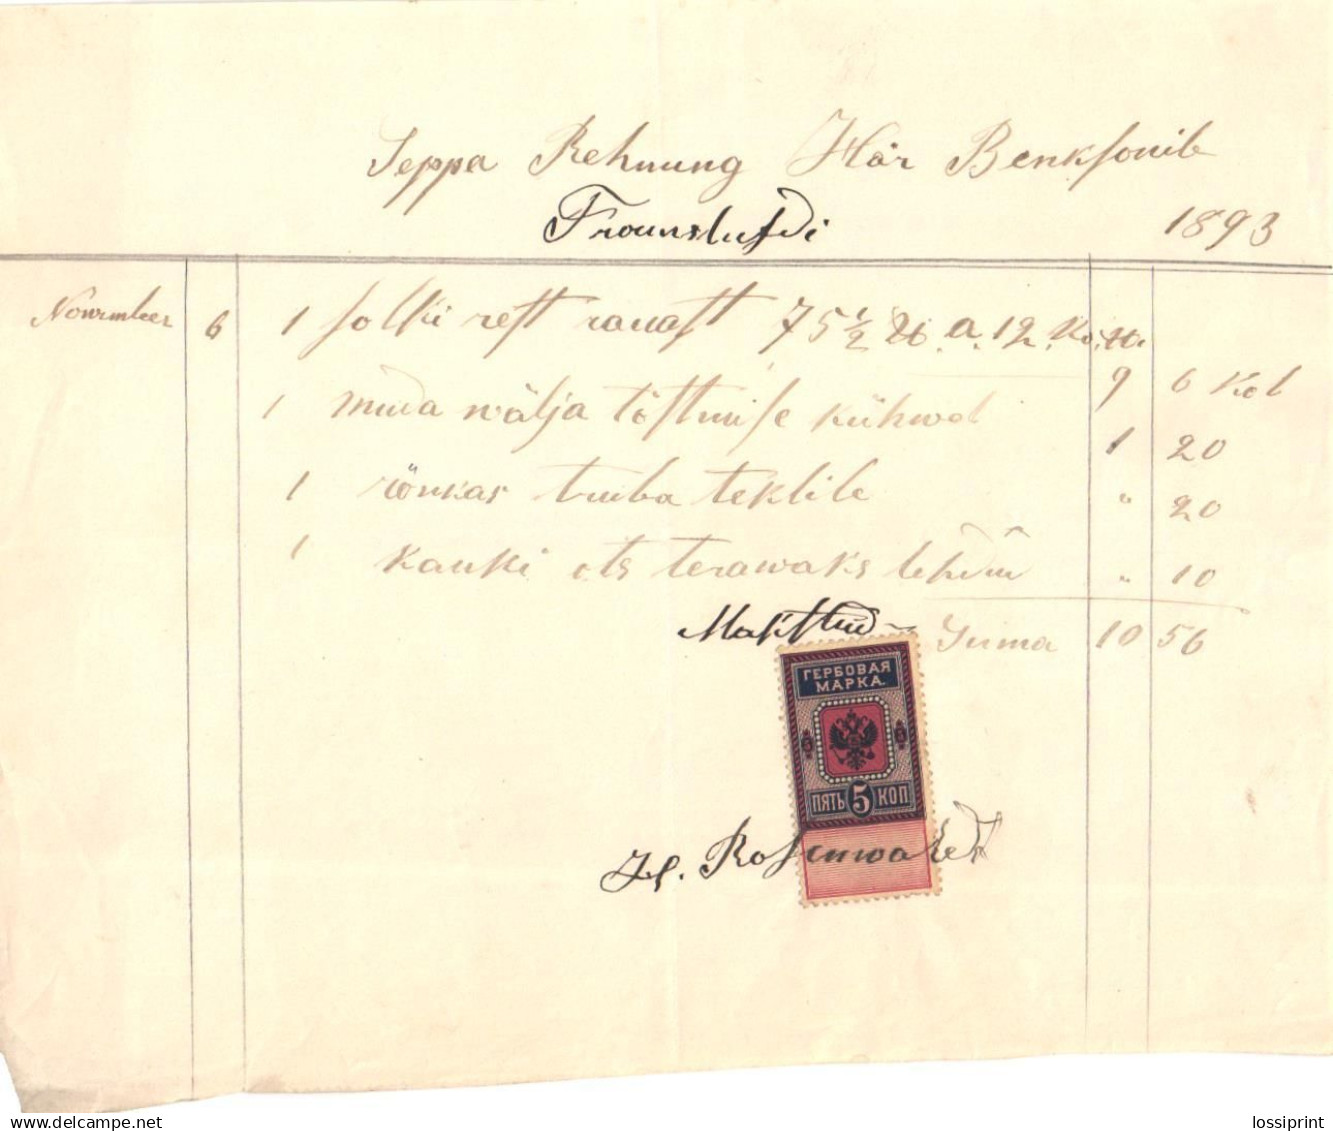 Seppa Rehnung Här Benksonile
1893
Nowember 6 1 solki rest rauast 75 1/2 ℔ a. 12 Ko. ℔.
9 6 Kob
1 muda wälja tõstmise kühwel
1 20
1 rõnkas tuuba teklile
" 20
1 kanki ots terawaks tehdu
" 10
Makstud Suma 10 56
ГЕРБОВАЯ
МАРКА.
5 5
ПЯТЬ 5 КОП
H. Rosenwaldt
www.delcampe.net
lossiprint